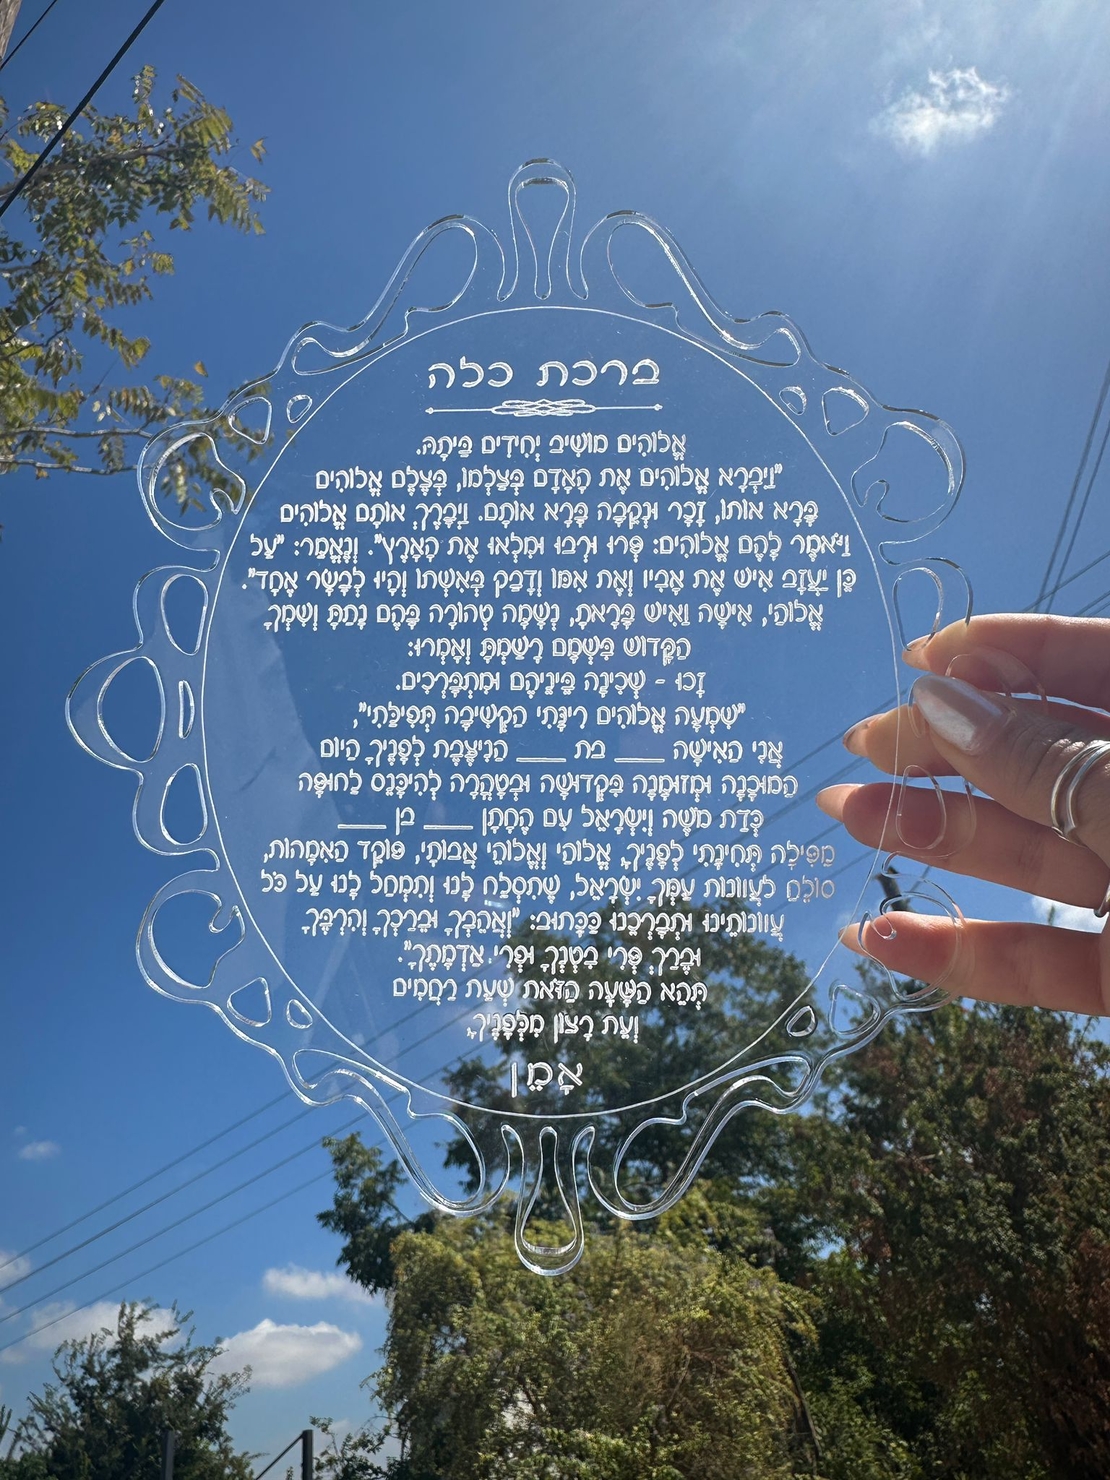 ברכת כלה
אֱלוֹהִים מוֹשִׁיב יְחִידִים בַּיְתָה.
"וַיִּבְרָא אֱלוֹהִים אֶת הָאָדָם בְּצַלְמוֹ, בְּצֶלֶם אֱלוֹהִים
בָּרָא אוֹתוֹ, זָכָר וּנְקֵבָה בָּרָא אוֹתָם. וַיְבָרֶךְ אוֹתָם אֱלוֹהִים
וַיֹּאמֶר לָהֶם אֱלוֹהִים: פְּרוּ וּרְבוּ וּמִלְאוּ אֶת הָאָרֶץ". וְנֶאֱמַר: "עַל
כֵּן יַעֲזָב אִישׁ אֶת אָבִיו וְאֶת אִמּוֹ וְדָבַק בְּאִשְׁתּוֹ וְהָיוּ לְבָשָׂר אֶחָד".
אֱלוֹהַי, אִישָּׁה וְאִישׁ בָּרָאתָ, נְשָׁמָה טְהוֹרָה בָּהֶם נָתַתָּ וְשִׁמְךָ
הַקָּדוֹשׁ בִּשְׁמָם רָשַׁמְתָּ וְאָמְרוּ:
זָכוּ - שְׁכִינָה בֵּינֵיהֶם וּמִתְבָּרְכִים.
"שִׁמְעָה אֱלוֹהִים רִינָּתִי הַקְשִׁיבָה תְּפִילָּתִי",
אֲנִי הָאִישָּׁה ____ בת ____ הַנִּיצֶּבֶת לְפָנֶיךָ הַיּוֹם
הַמּוּכָנָה וּמְזוּמָּנָה בִּקְדוּשָּׁה וּבְטָהֳרָה לְהִיכָּנֵס לַחוּפָּה
כְּדַת מֹשֶׁה וְיִשְׂרָאֵל עִם הֶחָתָן ____ בֶּן ____
מַפִּילָה תְּחִינָתִי לְפָנֶיךָ, אֱלוֹהַי וְאֱלוֹהֵי אֲבוֹתַי, פּוֹקֵד הָאִמָּהוֹת,
סוֹלֵחַ לַעֲוונוֹת עַמְּךָ יִשְׂרָאֵל, שֶׁתִּסְלַח לָנוּ וְתִמְחַל לָנוּ עַל כֹּל
עֲוונוֹתֵינוּ וּתְבָרְכֵנוּ כַּכָּתוּב: "וַאֲהֵבְךָ וּבֵרַכְךָ וְהִרְבֶּךָ
וּבֵרַךְ פְּרִי בִטְנְךָ וּפְרִי אַדְמָתֶךָ".
תְּהֵא הַשָּׁעָה הַזֹּאת שְׁעַת רַחֲמִים
וְעֵת רָצוֹן מִלְּפָנֶיךָ
אָמֵן